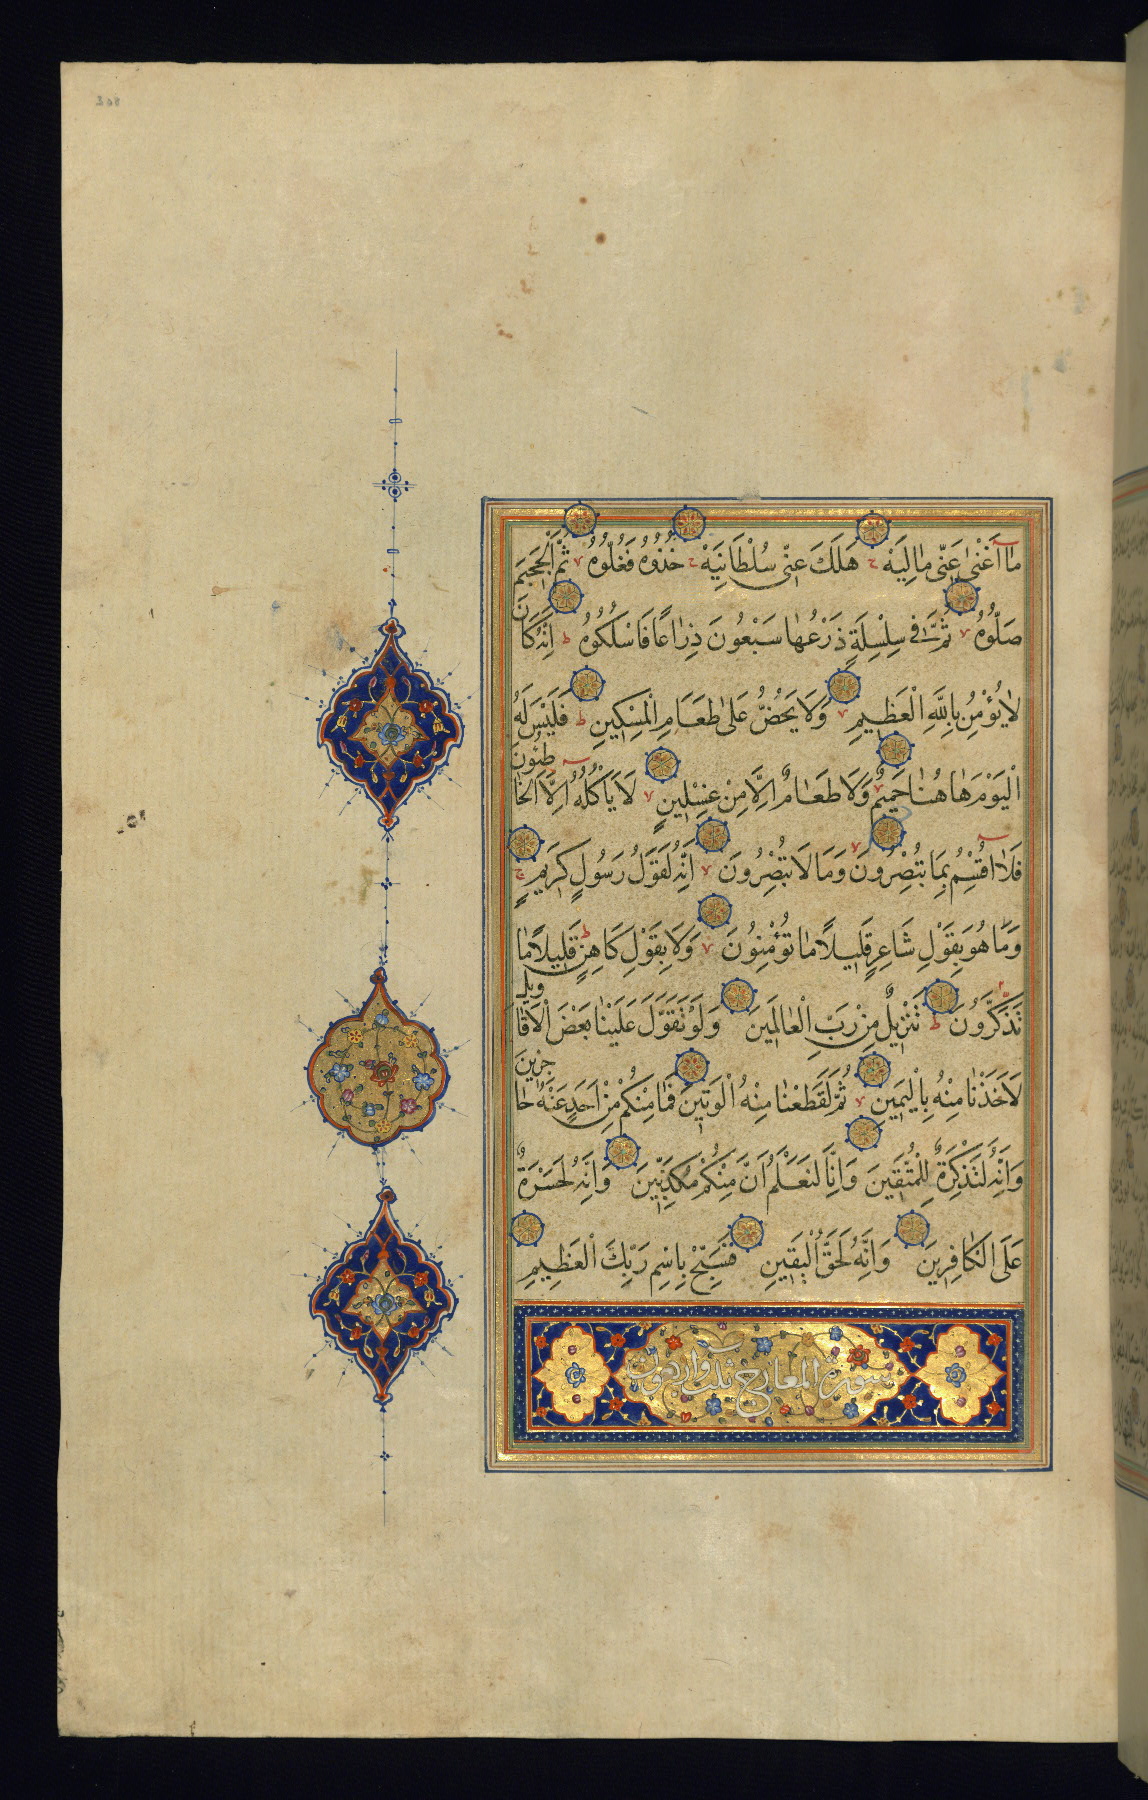 مَا أَغْنٰى عَنِّى مَالِيَهْ هَلَكَ عَنِّى سُلْطَانِيَهْ خُذُوهُ فَغُلُّوهُ ثُمَّ الْجَحِيمَ
صَلُّوهُ ثُمَّ فِى سِلْسِلَةٍ ذَرْعُهَا سَبْعُونَ ذِرَاعًا فَاسْلُكُوهُ اِنَّهُ كَانَ
لَا يُؤْمِنُ بِاللّٰهِ الْعَظِيمِ وَلَا يَحُضُّ عَلٰى طَعَامِ الْمِسْكِينِ فَلَيْسَ لَهُ
الْيَوْمَ هَاهُنَا حَمِيمٌ وَلَا طَعَامٌ اِلَّا مِنْ غِسْلِينٍ لَا يَأْكُلُهُ اِلَّا الْخَاطِئُونَ
فَلَا اُقْسِمُ بِمَا تُبْصِرُونَ وَمَا لَا تُبْصِرُونَ اِنَّهُ لَقَوْلُ رَسُولٍ كَرِيمٍ
وَمَا هُوَ بِقَوْلِ شَاعِرٍ قَلِيلًا مَا تُؤْمِنُونَ وَلَا بِقَوْلِ كَاهِنٍ قَلِيلًا مَا
تَذَكَّرُونَ تَنْزِيلٌ مِنْ رَبِّ الْعَالَمِينَ وَلَوْ تَقَوَّلَ عَلَيْنَا بَعْضَ الْاَقَاوِيلِ
لَاَخَذْنَا مِنْهُ بِالْيَمِينِ ثُمَّ لَقَطَعْنَا مِنْهُ الْوَتِينَ فَمَا مِنْكُمْ مِنْ اَحَدٍ عَنْهُ حَاجِزِينَ
وَاِنَّهُ لَتَذْكِرَةٌ لِلْمُتَّقِينَ وَاِنَّا لَنَعْلَمُ اَنَّ مِنْكُمْ مُكَذِّبِينَ وَاِنَّهُ لَحَسْرَةٌ
عَلَى الْكَافِرِينَ وَاِنَّهُ لَحَقُّ الْيَقِينِ فَسَبِّحْ بِاسْمِ رَبِّكَ الْعَظِيمِ
سورة المعارج ثلث واربعون